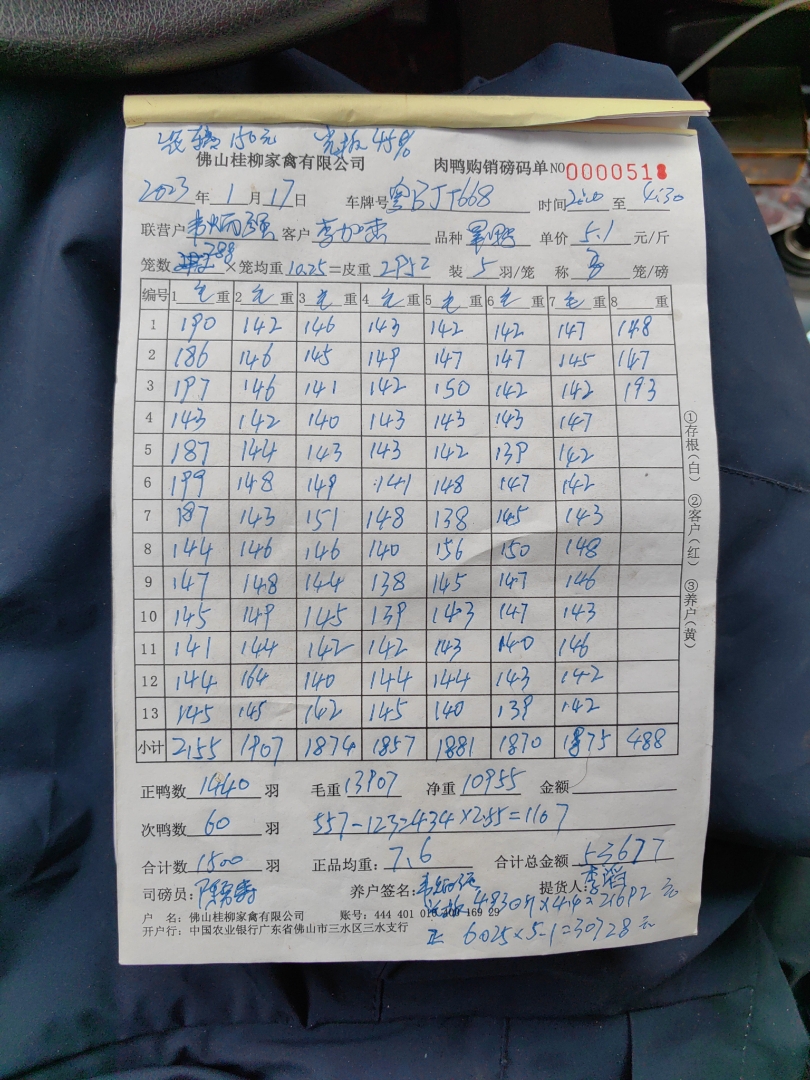 装车 150元 光板 45%
佛山桂柳家禽有限公司 肉鸭购销磅码单 NO 0000518
2023 年 1 月 17 日 车牌号 粤BJT668 时间 2:00 至 4:30
联营户 韦炳强 客户 李加杰 品种 单价 5.1 元/斤
笼数 288 ×笼均重 10.25 =皮重 2952 装 5 羽/笼 称 笼/磅
编号 1 毛 重 2 毛 重 3 毛 重 4 毛 重 5 毛 重 6 毛 重 7 毛 重 8 重
1 190 142 146 143 142 142 147 148
2 186 146 145 149 147 147 145 147
3 197 146 141 142 150 142 142 193
4 143 142 140 143 143 143 147
5 187 144 143 143 142 139 142
6 199 148 149 141 148 147 142
7 187 143 151 148 138 145 143
8 144 146 146 140 156 150 148
9 147 148 144 138 145 147 146
10 145 149 145 139 143 147 143
11 141 144 142 142 143 140 146
12 144 164 140 144 144 143 142
13 145 145 142 145 140 139 142
小计 2155 1907 1874 1857 1881 1870 1875 488
①存根(白) ②客户(红) ③养户(黄)
正鸭数 1440 羽 毛重 13907 净重 10955 金额
次鸭数 60 羽 557-123=434×2.55=1107
合计数 1500 羽 正品均重: 7.6 合计总金额 53677
司磅员: 养户签名: 提货人:
光板 4830斤×4.4=21692元
户 名: 佛山桂柳家禽有限公司 账号: 444 401 010 400 169 29
开户行: 中国农业银行广东省佛山市三水区三水支行
正 6025×5.1=30728元